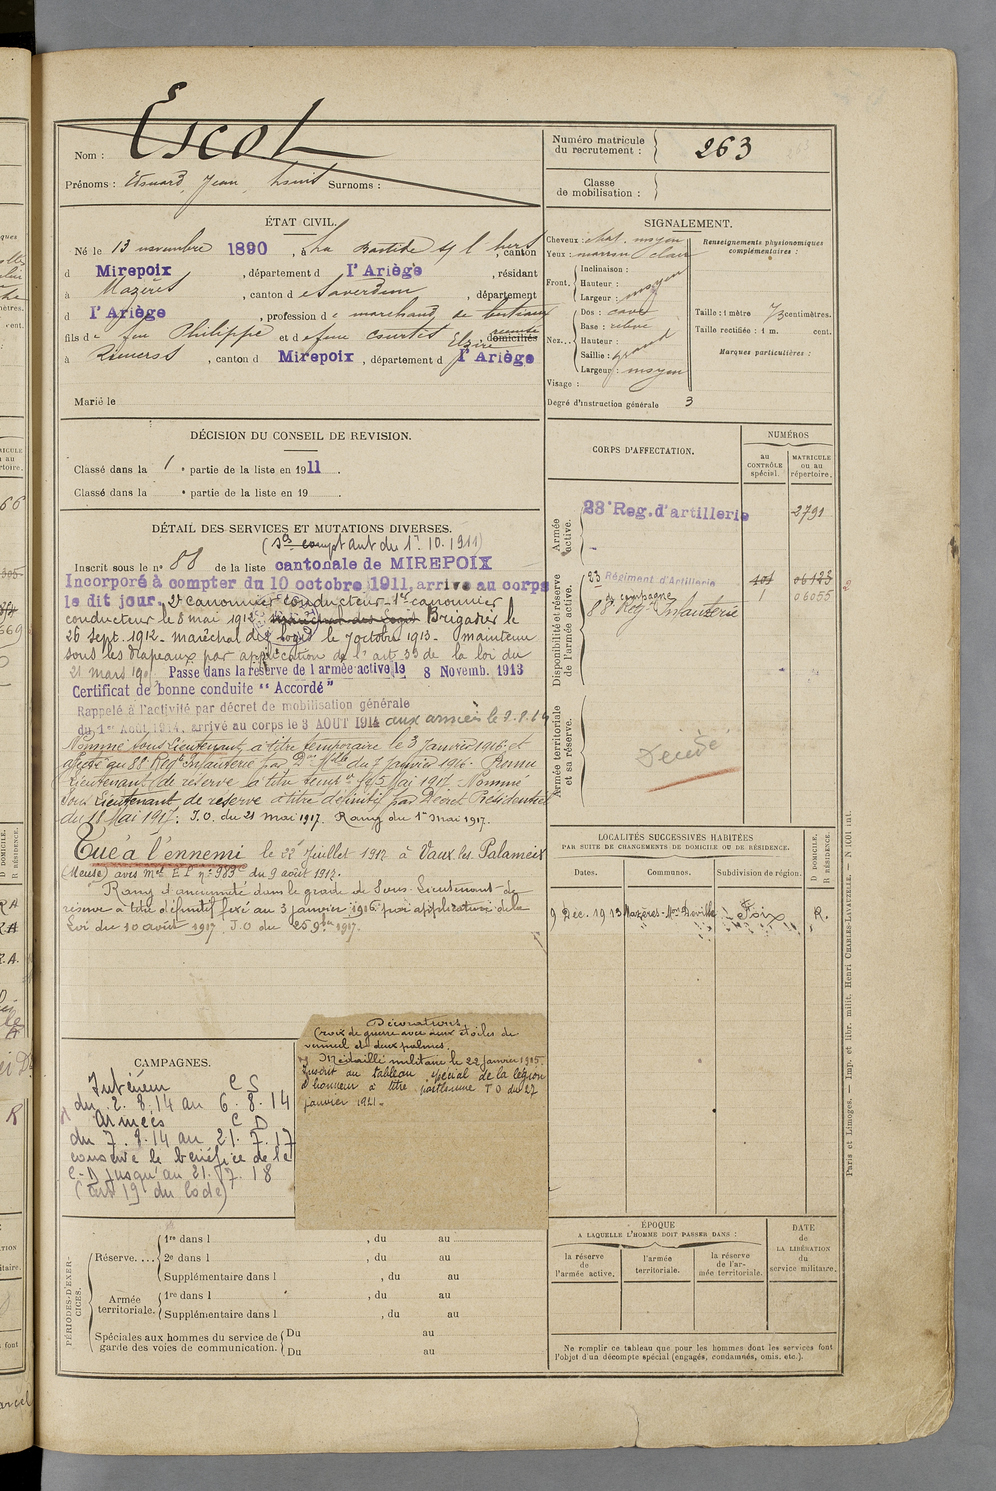 Nom : Escot
Prénoms : Edouard, Jean, Surnoms :
Numéro matricule
du recrutement : 263
Classe
de mobilisation :
ÉTAT CIVIL.
Né le 13 novembre 1890, à La Bastide s/ l'hers, canton
d Mirepoix, département d l'Ariège, résidant
à Mazères, canton d e Saverdun, département
d l'Ariège, profession d e marchand de bestiaux
fils d e feu Philippe et d e fune Courtes Elzire domiciliés
à , canton d Mirepoix, département d l'Ariège
Marié le
SIGNALEMENT.
Cheveux : chat. moyen
Yeux : marron clair
Front. Inclinaison :
Hauteur : moyen
Largeur :
Nez... Dos : cave
Base : relevé
Hauteur :
Saillie : grand
Largeur : moyen
Visage :
Degré d'instruction générale 3
Renseignements physionomiques
complémentaires :
Taille : 1 mètre 73 centimètres.
Taille rectifiée : 1 m. cent.
Marques particulières :
DÉCISION DU CONSEIL DE REVISION.
Classé dans la 1e partie de la liste en 1911.
Classé dans la e partie de la liste en 19 .
DÉTAIL DES SERVICES ET MUTATIONS DIVERSES.
(Ses comptant du 1er 10. 1911)
Inscrit sous le n° 88 de la liste cantonale de MIREPOIX
Incorporé à compter du 10 octobre 1911, arrivé au corps
le dit jour. 2e canonnier conducteur. 1er canonnier
conducteur le 8 mai 1912 maréchal des logis Brigadier le
26 Sept. 1912. maréchal des logis le 7 octobre 1913. maintenu
sous les drapeaux par application de l'art 33 de la loi du
21 mars 1905 Passe dans la réserve de l'armée active le 8 Novemb. 1913
Certificat de bonne conduite "Accordé"
Rappelé à l'activité par décret de mobilisation générale
du 1er Août 1914, arrivé au corps le 3 AOUT 1914 aux armées le
Nommé sous Lieutenant à titre temporaire le 3 Janvier 1916 et
affecté au 88 Régt Infanterie par Don Mlle du 7 Janvier 1916. Promu
Lieutenant de réserve à titre tempre le 5 Mai 1917. Nommé
sous Lieutenant de réserve à titre définitif par Décret Présidentiel
du 11 Mai 1917. J.O. du 21 mai 1917. Rang du 1er Mai 1917.
Tué à l'ennemi le 22 Juillet 1917 à Vaux les Palameix
(Meuse) avis Mel E.P. n° 983 du 9 août 1917.
Rang d'ancienneté dans le grade de Sous-Lieutenant de
réserve à titre définitif fixé au 3 janvier 1916 par application de la
Loi du 10 août 1917. J.O du 25 9bre 1917.
CORPS D'AFFECTATION.
NUMÉROS
au
CONTRÔLE
spécial.
MATRICULE
ou au
répertoire.
Armée
active.
23e Reg. d'artillerie 2791
Disponibilité et réserve
de l'armée active.
23 Régiment d'Artillerie 06123
de campagne
88e Régt Infanterie 1 06055
Armée territoriale
et sa réserve.
Décédé
LOCALITÉS SUCCESSIVES HABITÉES
PAR SUITE DE CHANGEMENTS DE DOMICILE OU DE RÉSIDENCE.
Dates. Communes. Subdivision de région.
D DOMICILE.
R RÉSIDENCE.
9 Dec. 1913 Mazères - Foix R.
CAMPAGNES.
Intérieur C S
du 2. 8. 14 au 6. 8. 14
Armées C D
du 7. 8. 14 au 21. 7. 17
conserve le bénéfice de la
C-D jusqu'au 21. 7. 18
(art 19 du Code)
Décorations
Croix de guerre avec deux étoiles de
vermeil et deux palmes.
Médaille militaire le 22 janvier 1915.
Inscrit au tableau spécial de la légion
d'honneur à titre posthume J O du 27
janvier 1921.
PÉRIODES D'EXERCICES.
Réserve.... 1re dans l , du au
2e dans l , du au
Supplémentaire dans l , du au
Armée
territoriale. 1re dans l , du au
Supplémentaire dans l , du au
Spéciales aux hommes du service de
garde des voies de communication. Du au
Du au
ÉPOQUE
A LAQUELLE L'HOMME DOIT PASSER DANS :
la réserve
de
l'armée active.
l'armée
territoriale.
la réserve
de l'ar-
mée territoriale.
DATE
de
LA LIBÉRATION
du
service militaire.
Ne remplir ce tableau que pour les hommes dont les services font
l'objet d'un décompte spécial (engagés, condamnés, omis, etc.).
Paris et Limoges. — Imp. et libr. milit. Henri CHARLES-LAVAUZELLE. — N° 101 int.